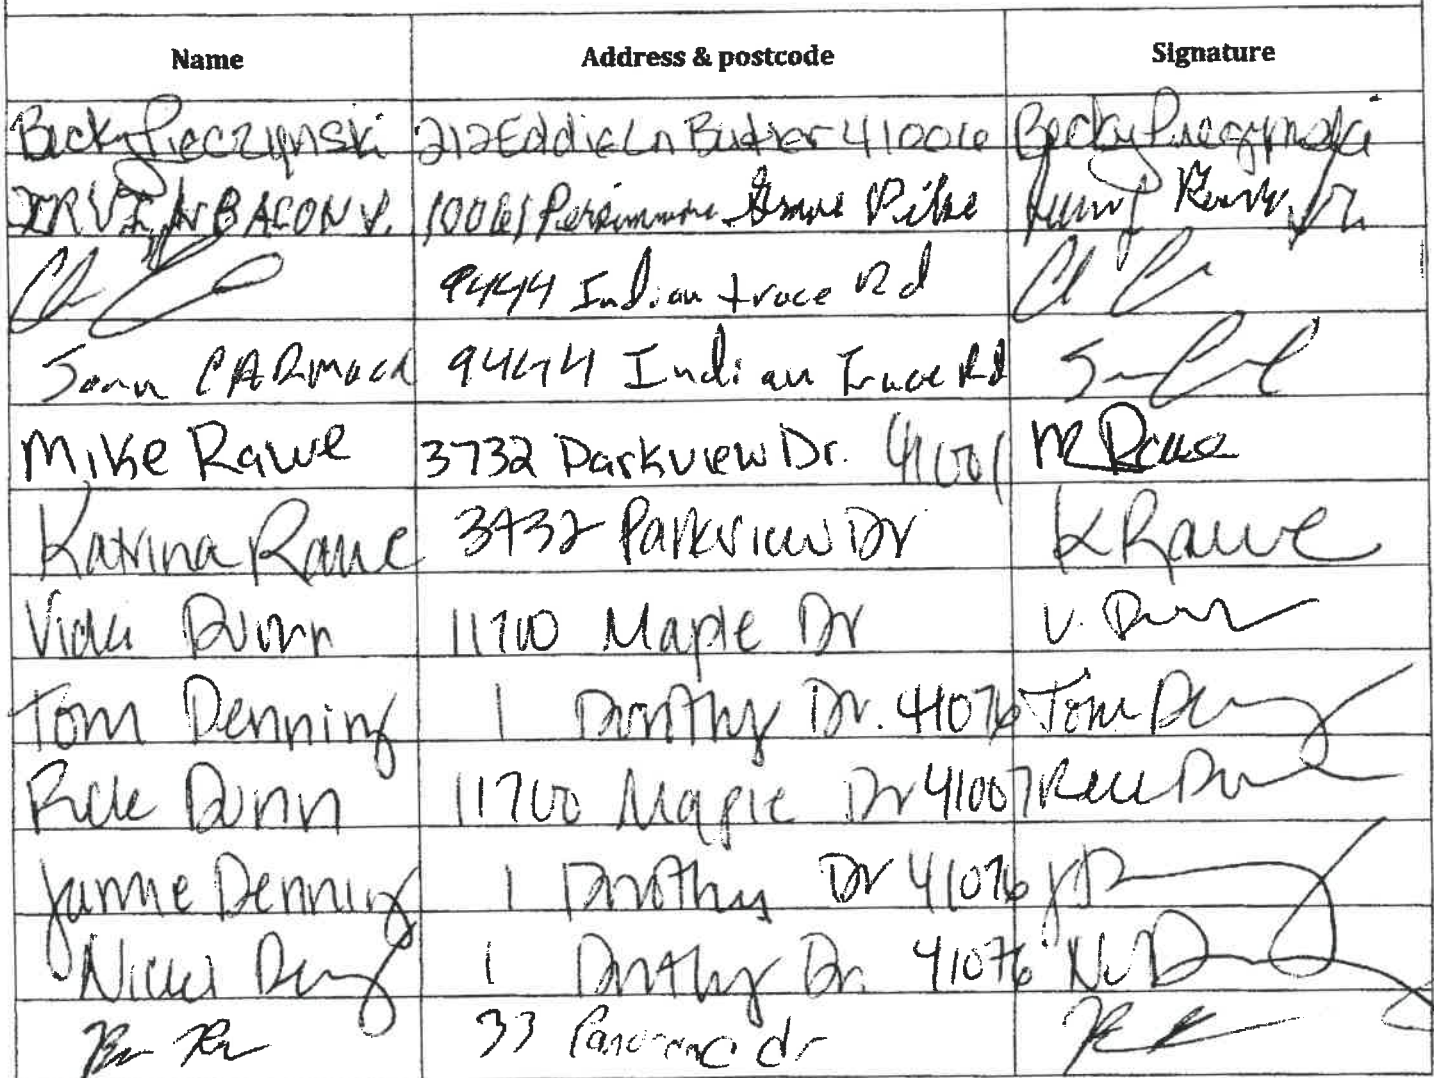 Name Address & postcode Signature
Becky Pieczynski 212 Eddie Ln Butler 41006 Becky Pieczynski
IRVIN BACON Jr. 10061 Persimmon Grove Pike
9444 Indian trace Rd
Sean CARMACK 9444 Indian Trace Rd
Mike Rawe 3732 Parkview Dr. 41001 M Rawe
Katrina Rawe 3732 Parkview Dr K Rawe
Vicki Dunn 11700 Maple Dr V. Dunn
Tom Denning 1 Dorothy Dr. 41076 Tom Denning
Rick Dunn 11700 Maple Dr 41007 Rick Dunn
Jannie Denning 1 Dorothy Dr 41076
Nicki Denning 1 Dorothy Dr. 41076
33 Panorama dr